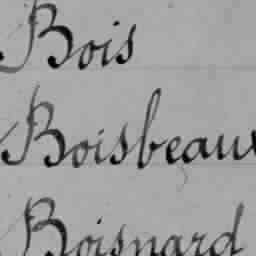 Bois
Boisbeaux
Boisnard